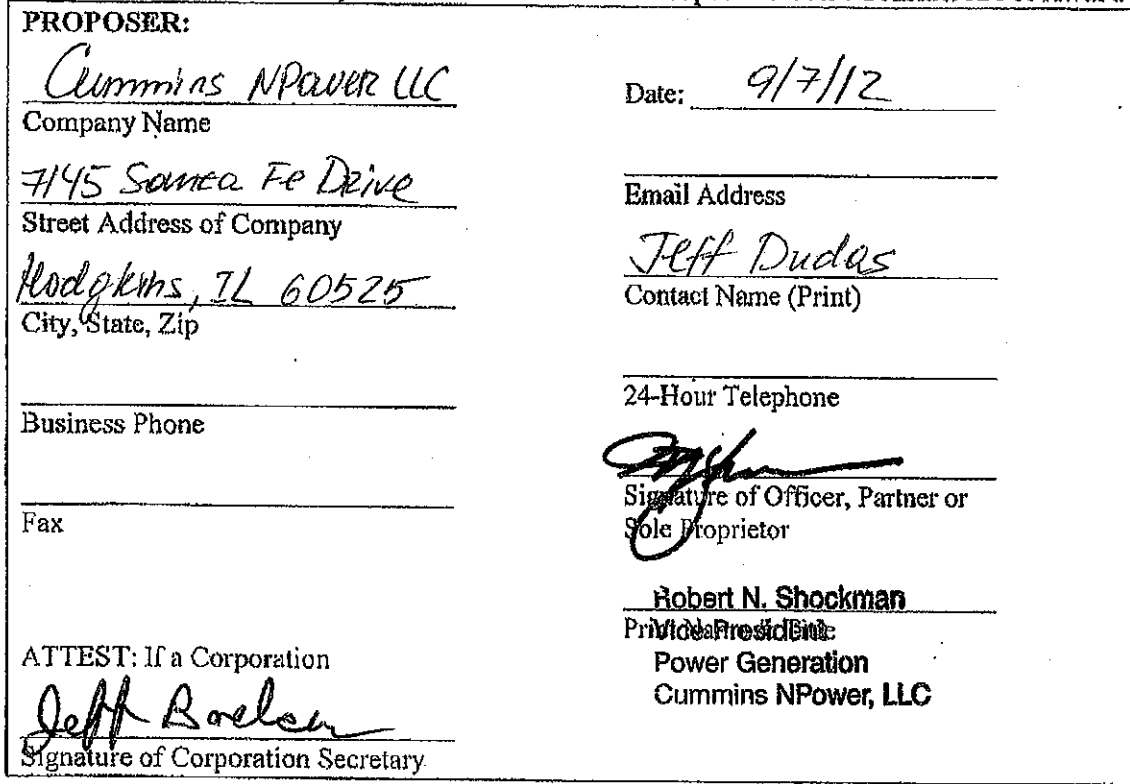 PROPOSER:
Cummins NPower LLC
Company Name
7145 Santa Fe Drive
Street Address of Company
Hodgkins, IL 60525
City, State, Zip
Business Phone
Fax
ATTEST: If a Corporation
Jeff
Signature of Corporation Secretary
Date: 9/7/12
Email Address
Jeff Dudas
Contact Name (Print)
24-Hour Telephone
Signature of Officer, Partner or
Sole Proprietor
Robert N. Shockman
Vice President
Power Generation
Cummins NPower, LLC